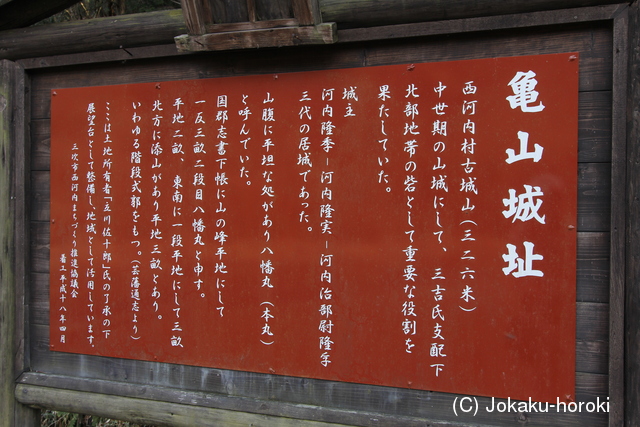 亀山城址
西河内村古城山(三二六米)
中世期の山城にして、三吉氏支配下
北部地帯の砦として重要な役割を
果たしていた。
城主
河内隆季ー河内隆実ー河内治部尉隆孚
三代の居城であった。
山腹に平坦な処があり八幡丸(本丸)
と呼んでいた。
国郡志書下帳に山の峰平地にして
一反三畝二段目八幡丸と申す。
平地二畝、東南に一段平地にして三畝
北方に添山があり平地三畝とあり。
いわゆる階段式郭をもつ。(芸藩通志より)
ここは土地所有者「立川佐十郎」氏の了承の下
展望台として整備し、地域として活用しています。
三次市西河内まちづくり推進協議会
着工平成十八年四月
(C) Jokaku-horoki